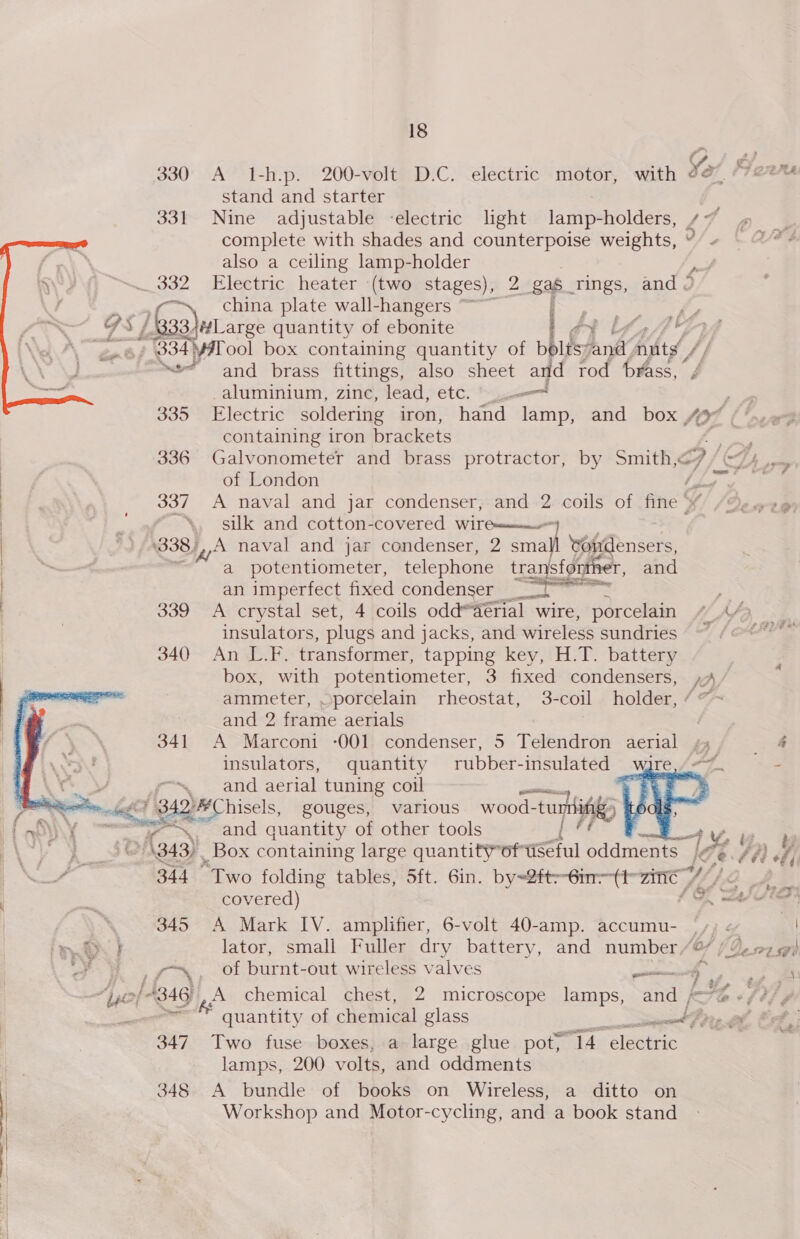 18
330 A 1-h.p. 200-volt D.C. electric motor, with
stand and starter
331 Nine adjustable electric light lamp-holders,
complete with shades and counterpoise weights,
also a ceiling lamp-holder
332 Electric heater (two stages), 2 gas rings, and
china plate wall-hangers
333 Large quantity of ebonite
334 Tool box containing quantity of bolts and nuts
and brass fittings, also sheet and rod brass,
aluminium, zinc, lead, etc.
335 Electric soldering iron, hand lamp, and box
containing iron brackets
336 Galvonometer and brass protractor, by Smith,
of London
337 A naval and jar condenser, and 2 coils of fine
silk and cotton-covered wire
338 A naval and jar condenser, 2 small condensers,
a potentiometer, telephone transformer, and
an imperfect fixed condenser
339 A crystal set, 4 coils odd aerial wire, porcelain
insulators, plugs and jacks, and wireless sundries
340 An L.F. transformer, tapping key, H.T. battery
box, with potentiometer, 3 fixed condensers,
ammeter, porcelain rheostat, 3-coil holder,
and 2 frame aerials
341 A Marconi ·001 condenser, 5 Telendron aerial
insulators, quantity rubber-insulated wire,
and aerial tuning coil
342 Chisels, gouges, various wood-turning tools,
and quantity of other tools
343 Box containing large quantity of useful oddments
344 Two folding tables, 5ft. 6in. by 2ft. 6in. (1 zinc
covered)
345 A Mark IV. amplifier, 6-volt 40-amp. accumu-
lator, small Fuller dry battery, and number
of burnt-out wireless valves
346 A chemical chest, 2 microscope lamps, and
quantity of chemical glass
347 Two fuse boxes, a large glue pot, 14 electric
lamps, 200 volts, and oddments
348 A bundle of books on Wireless, a ditto on
Workshop and Motor-cycling, and a book stand